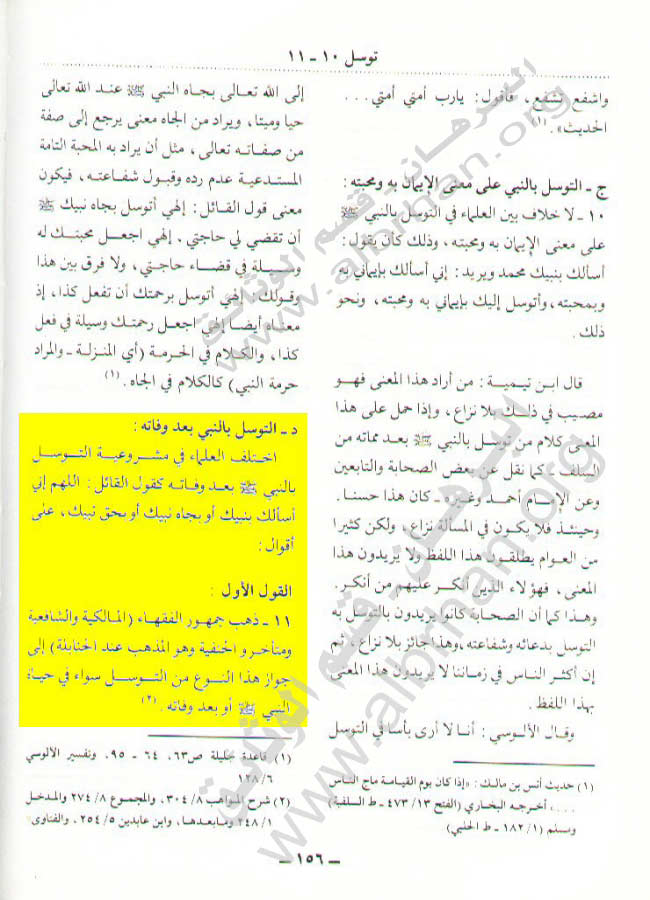 توسل ١٠ - ١١
واشفع تشفع، فأقول: يارب أمتي أمتي . . .
الحديث». (١)
ج - التوسل بالنبي على معنى الإيمان به ومحبته:
١٠ - لا خلاف بين العلماء في التوسل بالنبي ﷺ
على معنى الإيمان به ومحبته، وذلك كأن يقول:
أسألك بنبيك محمد ويريد: إني أسألك بإيماني به
وبمحبته، وأتوسل إليك بإيماني به ومحبته، ونحو
ذلك.
قال ابن تيمية: من أراد هذا المعنى فهو
مصيب في ذلك بلا نزاع، وإذا حمل على هذا
المعنى كلام من توسل بالنبي ﷺ بعد مماته من
السلف، كما نقل عن بعض الصحابة والتابعين
وعن الإمام أحمد وغيره - كان هذا حسنا.
وحينئذ فلا يكون في المسألة نزاع، ولكن كثيرا
من العوام يطلقون هذا اللفظ ولا يريدون هذا
المعنى، فهؤلاء الذين أنكر عليهم من أنكر.
وهذا كما أن الصحابة كانوا يريدون بالتوسل به
التوسل بدعائه وشفاعته، وهذا جائز بلا نزاع، ثم
إن أكثر الناس في زماننا لا يريدون هذا المعنى
بهذا اللفظ.
وقال الألوسي: أنا لا أرى بأسا في التوسل
(١) حديث أنس بن مالك: «إذا كان يوم القيامة ماج الناس
. . . . ، أخرجه البخاري (الفتح ١٣/ ٤٧٣ - ط السلفية)
ومسلم (١/ ١٨٢ - ط الحلبي)
إلى الله تعالى بجاه النبي ﷺ عند الله تعالى
حيا وميتا، ويراد من الجاه معنى يرجع إلى صفة
من صفاته تعالى، مثل أن يراد به المحبة التامة
المستدعية عدم رده وقبول شفاعته، فيكون
معنى قول القائل: إلهي أتوسل بجاه نبيك ﷺ
أن تقضي لي حاجتي، إلهي اجعل محبتك له
وسيلة في قضاء حاجتي، ولا فرق بين هذا
وقولك: إلهي أتوسل برحمتك أن تفعل كذا، إذ
معناه أيضا إلهي اجعل رحمتك وسيلة في فعل
كذا، والكلام في الحرمة (أي المنزلة - والمراد
حرمة النبي) كالكلام في الجاه. (١)
د - التوسل بالنبي بعد وفاته:
اختلف العلماء في مشروعية التوسل
بالنبي ﷺ بعد وفاته كقول القائل: اللهم إني
أسألك بنبيك أو بجاه نبيك أو بحق نبيك، على
أقوال:
القول الأول:
١١ - ذهب جمهور الفقهاء (المالكية والشافعية
ومتأخرو الحنفية وهو المذهب عند الحنابلة) إلى
جواز هذا النوع من التوسل سواء في حياة
النبي ﷺ أو بعد وفاته. (٢)
(١) قاعدة جليلة ص٦٣، ٦٤ - ٩٥، وتفسير الألوسي
٦/ ١٢٨
(٢) شرح المواهب ٨/ ٣٠٤، والمجموع ٨/ ٢٧٤ والمدخل
١/ ٢٤٨ وما بعدها، وابن عابدين ٥/ ٢٥٤، والفتاوى
- ١٥٦ -
البرهان قسم الوثائق
www.albrhan.org
البرهان قسم الوثائق
www.albrhan.org